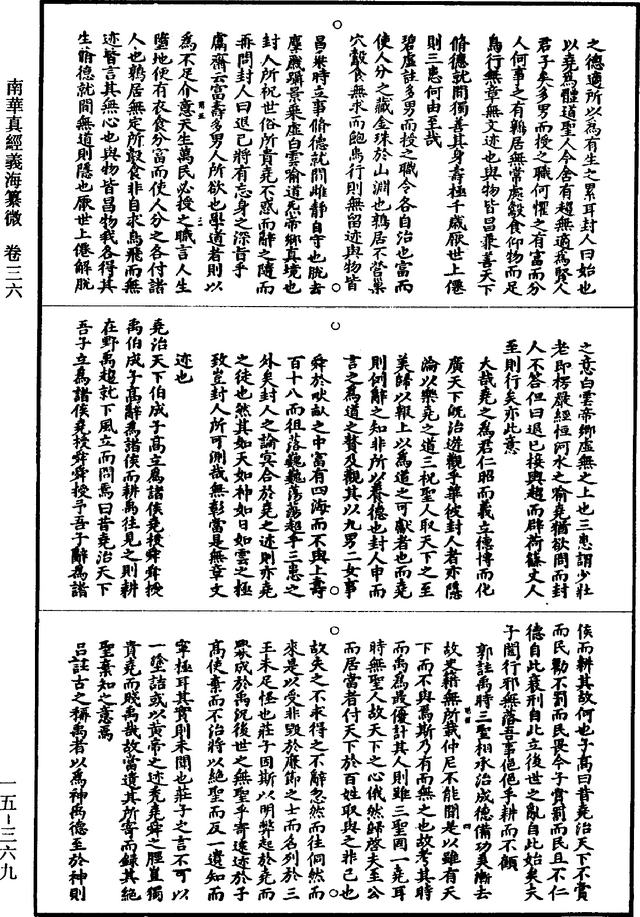 之德適所以為有生之累耳封人曰始也
以堯為體道聖人今舍有超無適為賢人
君子矣多男而授之職何懼之有富而分
人何事之有鶉居無常處鷇食仰物而足
鳥行無章無文迹也與物皆昌兼善天下
脩德就閒獨善其身壽極千歲厭世上僊
則三患何由至哉
碧虛註多男而授之職令各自治也富而
使人分之藏金珠於山淵也鶉居不營巢
穴鷇食無求而飽鳥行則無留迹與物皆
昌乘時立事脩德就閒雌靜自守也脫去
塵廠躡景乘虛白雲喻道炁帝鄉真境也
封人所祝世俗所貴堯不惑而辭之隨而
再問封人曰退已將有忘身之深旨乎
鬳齋云富壽多男人所欲也學道者則以
為不足介意天生萬民必授之職言人生
墮地便有衣食分富而使人分之各付諸
人也鶉居無定所鷇食非自求鳥飛而無
迹皆言其無心也與物皆昌物我各得其
生脩德就閒無道則隱也厭世上僊解脫
之意白雲帝鄉虛無之上也三患謂少壯
老即楞嚴經恒河水之喻堯猶欲問而封
人不答但曰退已接輿趨而辟荷蓧丈人
至則行矣亦此意
大哉堯之為君仁昭而義立德博而化
廣天下既治遊觀乎華彼封人者亦隱
淪以樂堯之道三祝聖人取天下之至
美歸以報上以為道之可獻者也而堯
則例辭之知非所以養德也封人申而
言之為道之贅及觀其以九男二女事
舜於畎畝之中富有四海而不與上壽
百十八而徂落巍巍蕩蕩超乎三患之
外矣封人之論冥合於堯之迹則亦堯
之徒也然其如天如神如日如雲之極
致豈封人所可測哉無彰當是無章文
迹也
堯治天下伯成子高立為諸侯堯授舜舜授
禹伯成子高辭為諸侯而耕禹往見之則耕
在野禹趨就下風立而問焉曰昔堯治天下
吾子立為諸侯堯授舜舜授予吾子辭為諸
侯而耕其故何也子高曰昔堯治天下不賞
而民勸不罰而民畏今子賞罰而民且不仁
德自此衰刑自此立後世之亂自此始矣夫
子闔行邪無落吾事俋俋乎耕而不顧
郭註禹時三聖相承治成德備功美漸去
故史籍無所載仲尼不能間是以雖有天
下而不與焉斯乃有而無之也故考其時
而禹為最優計其人則雖三聖固一堯耳
時無聖人故天下之心俄然歸啓夫至公
而居當者付天下於百姓取與之非已也
故失之不求得之不辭忽然而往侗然而
來是以受非毀於廉節之士而名列於三
王未足怪也莊子因斯以明弊起於堯而
釁成於禹況後世之無聖乎寄遠迹於子
高使棄而不治將以絕聖而反一遺知而
寧極耳其實則未聞也莊子之言不可以
一塗詰或以黃帝之迹禿堯舜之脛豈獨
貴堯而賤禹哉故當遺其所寄而錄其絕
聖棄知之意焉
呂註古之稱禹者以為神禹德至於神則
南華真經義海纂微　卷三六
一五—三六九